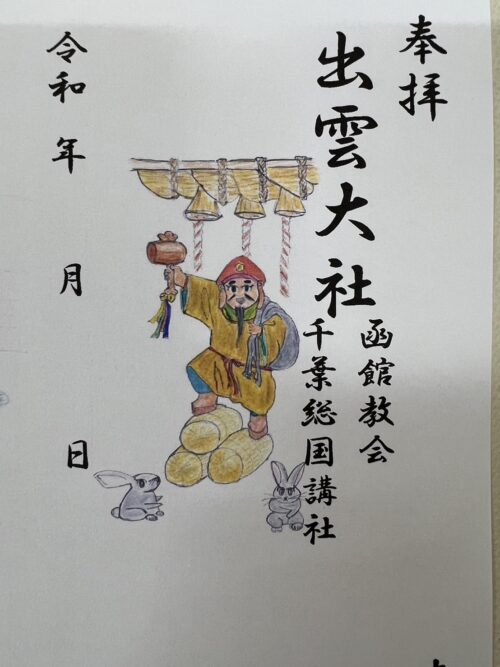 奉拝
出雲大社
函館教会
千葉総国講社
令和 年 月 日